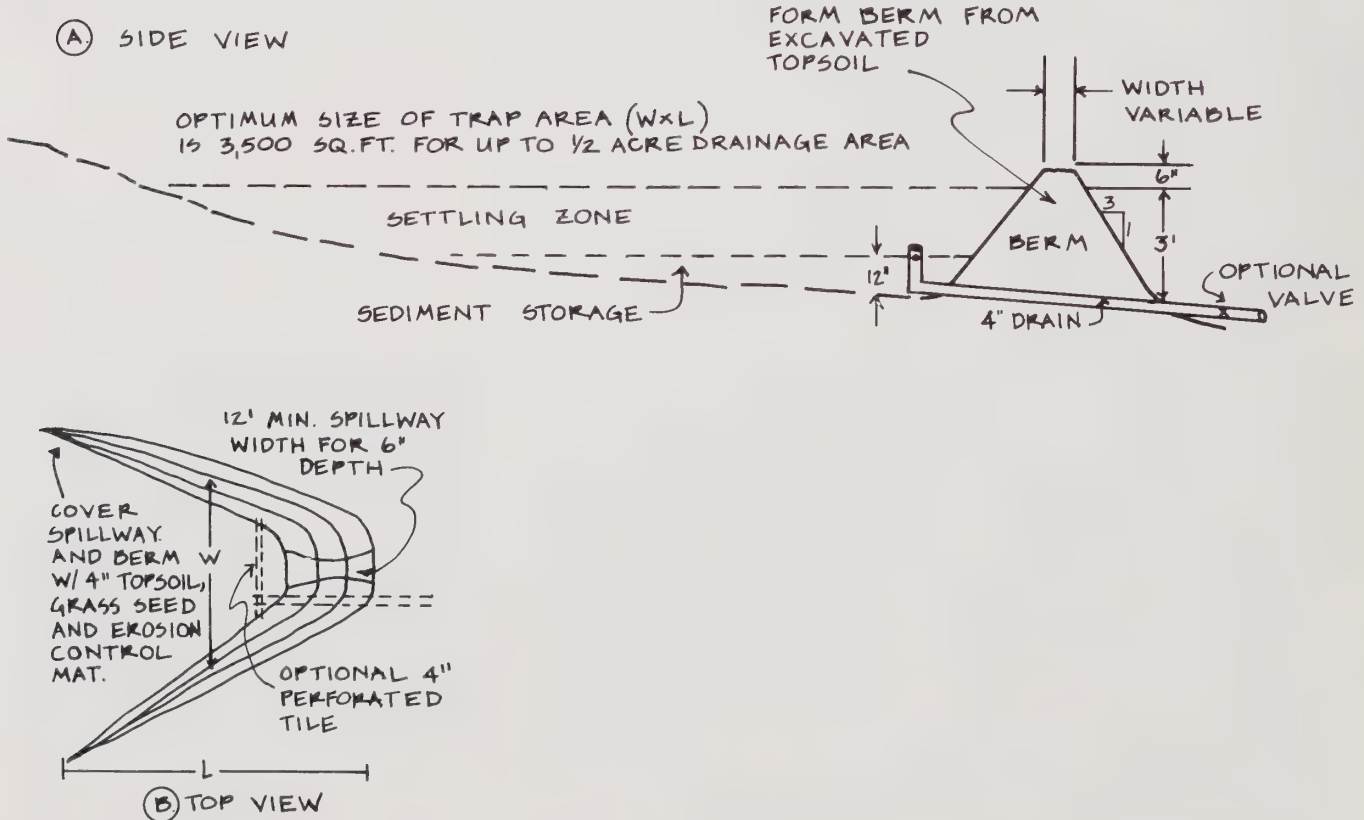 Ⓐ SIDE VIEW
FORM BERM FROM
EXCAVATED
TOPSOIL
WIDTH
VARIABLE
OPTIMUM SIZE OF TRAP AREA (WXL)
IS 3,500 SQ.FT. FOR UP TO 1/2 ACRE DRAINAGE AREA
6"
SETTLING ZONE
3
1
BERM
3'
12"
OPTIONAL
VALVE
SEDIMENT STORAGE
4" DRAIN
12' MIN. SPILLWAY
WIDTH FOR 6"
DEPTH
COVER
SPILLWAY
AND BERM
W/ 4" TOPSOIL,
GRASS SEED
AND EROSION
CONTROL
MAT.
W
OPTIONAL 4"
PERFORATED
TILE
L
Ⓑ TOP VIEW